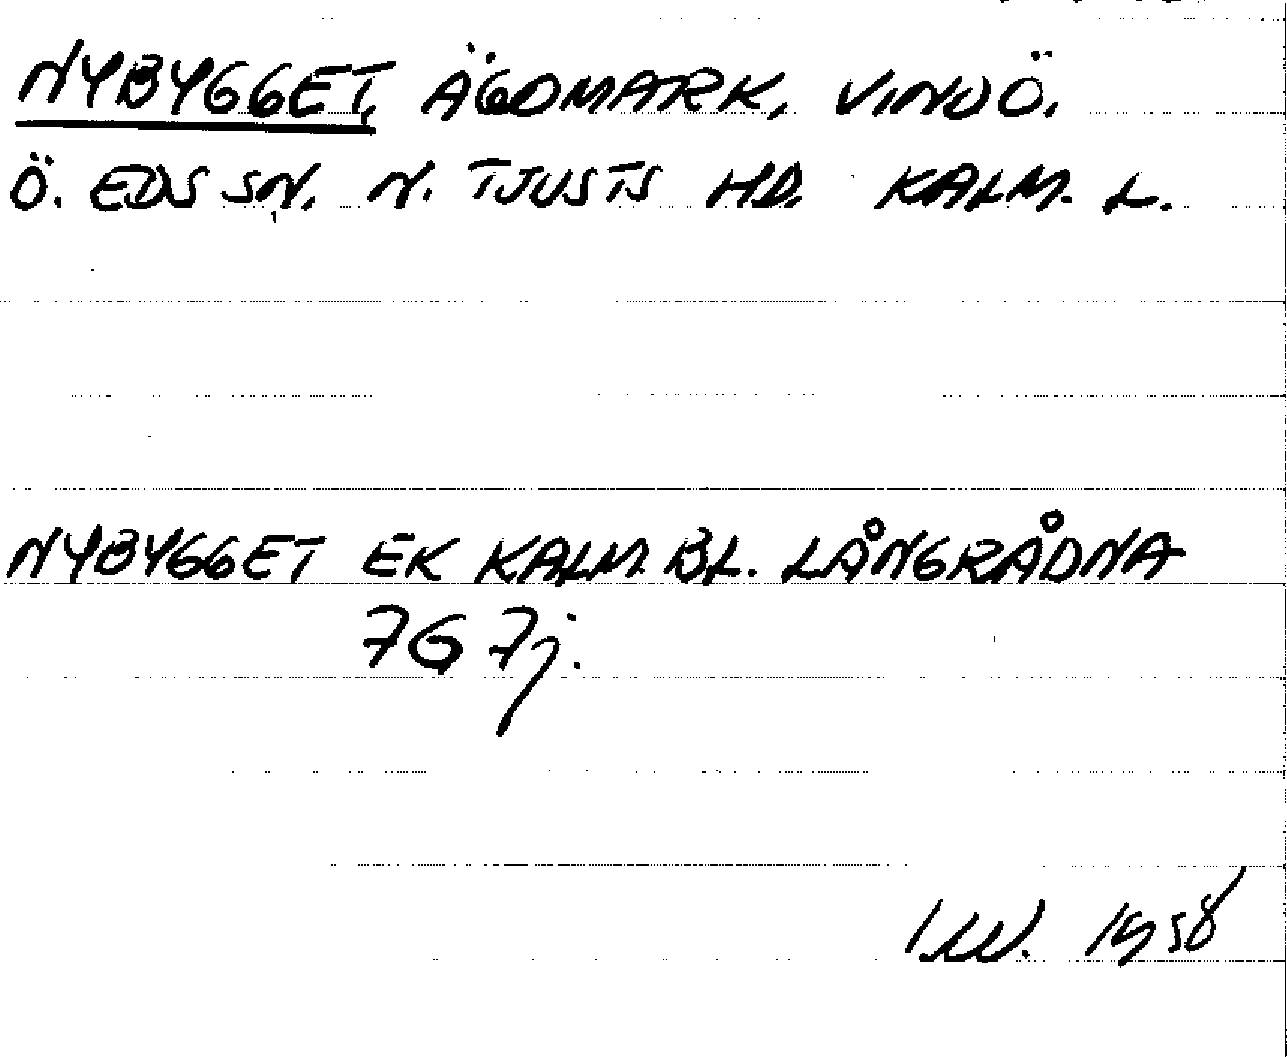 NYBYGGET, ÄGOMARK, VINÖ.
Ö. EDS SN. N. TJUSTS HD. KALM. L.
NYBYGGET EK KALM. BL. LÅNGRÅDNA
7G 7j.
1958